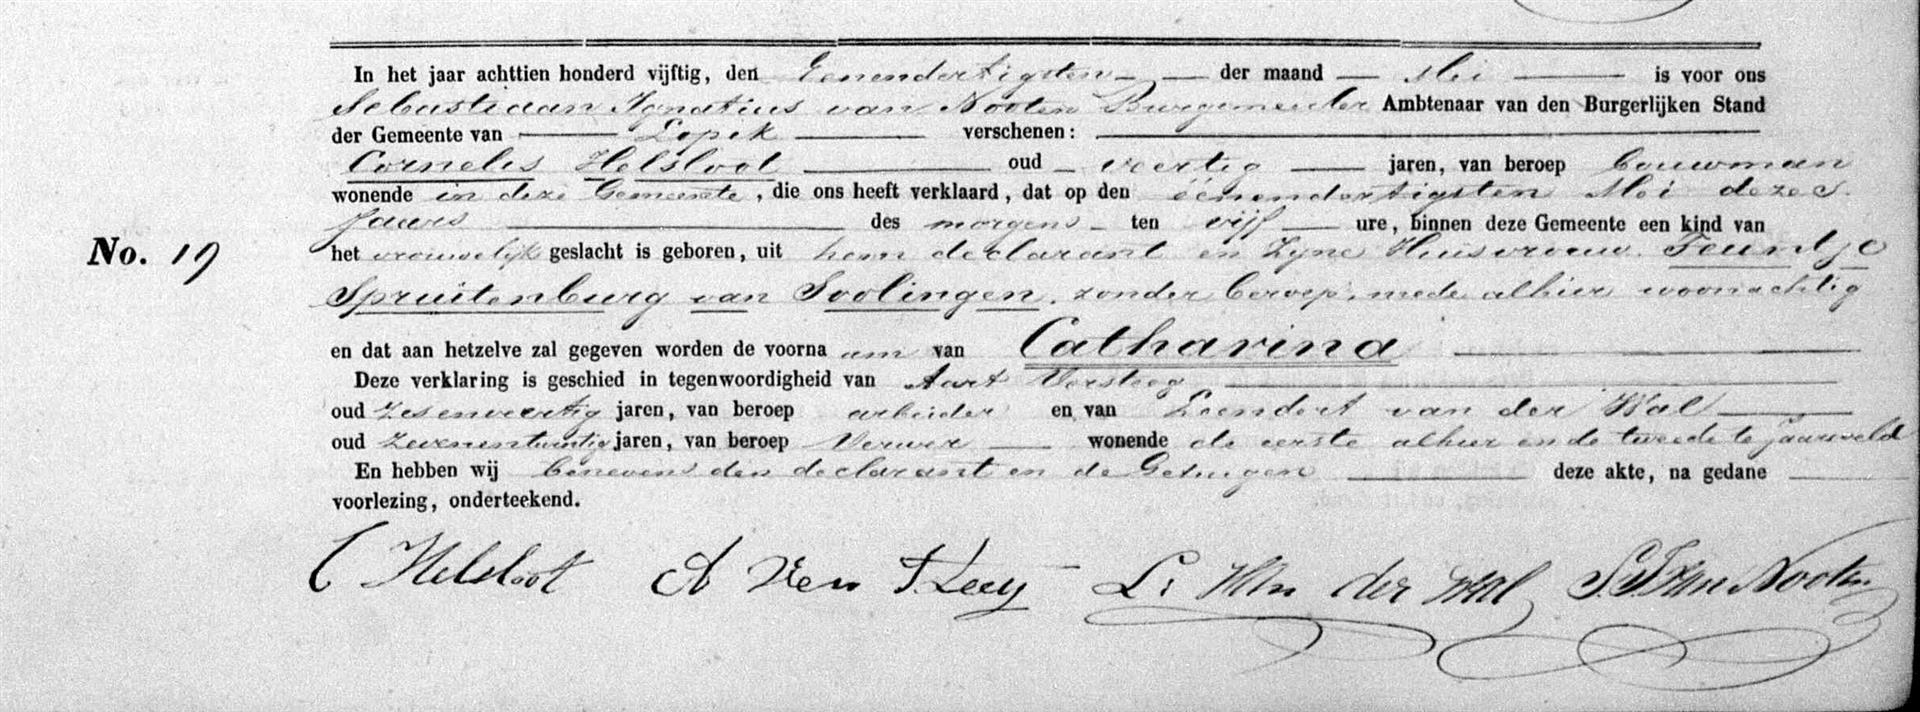 In het jaar achttien honderd vijftig, den Eenendertigsten der maand Mei is voor ons
Sebastiaan Ignatius van Nooten Burgemeester Ambtenaar van den Burgerlijken Stand
der Gemeente van Lopik verschenen:
Cornelis Helsloot oud veertig jaren, van beroep bouwman
wonende in deze Gemeente, die ons heeft verklaard, dat op den eenendertigsten Mei dezes
Jaars des morgens ten vijf ure, binnen deze Gemeente een kind van
No. 19 het vrouwelijk geslacht is geboren, uit hem declarant en Zyne Huisvrouw Teuntje
Spruitenburg van Soolingen, zonder beroep, mede alhier woonachtig
en dat aan hetzelve zal gegeven worden de voorna am van Catharina
Deze verklaring is geschied in tegenwoordigheid van Aart Versteeg
oud Zesenveertig jaren, van beroep arbeider en van Leendert van der Wal
oud Zevenentwintig jaren, van beroep Verwer wonende de eerste alhier en de tweede te Jaarsveld
En hebben wij benevens den declarant en de Getuigen deze akte, na gedane
voorlezing, onderteekend.
C Helsloot A Ver Steeg L. Van der Wal S. I. Van Nooten